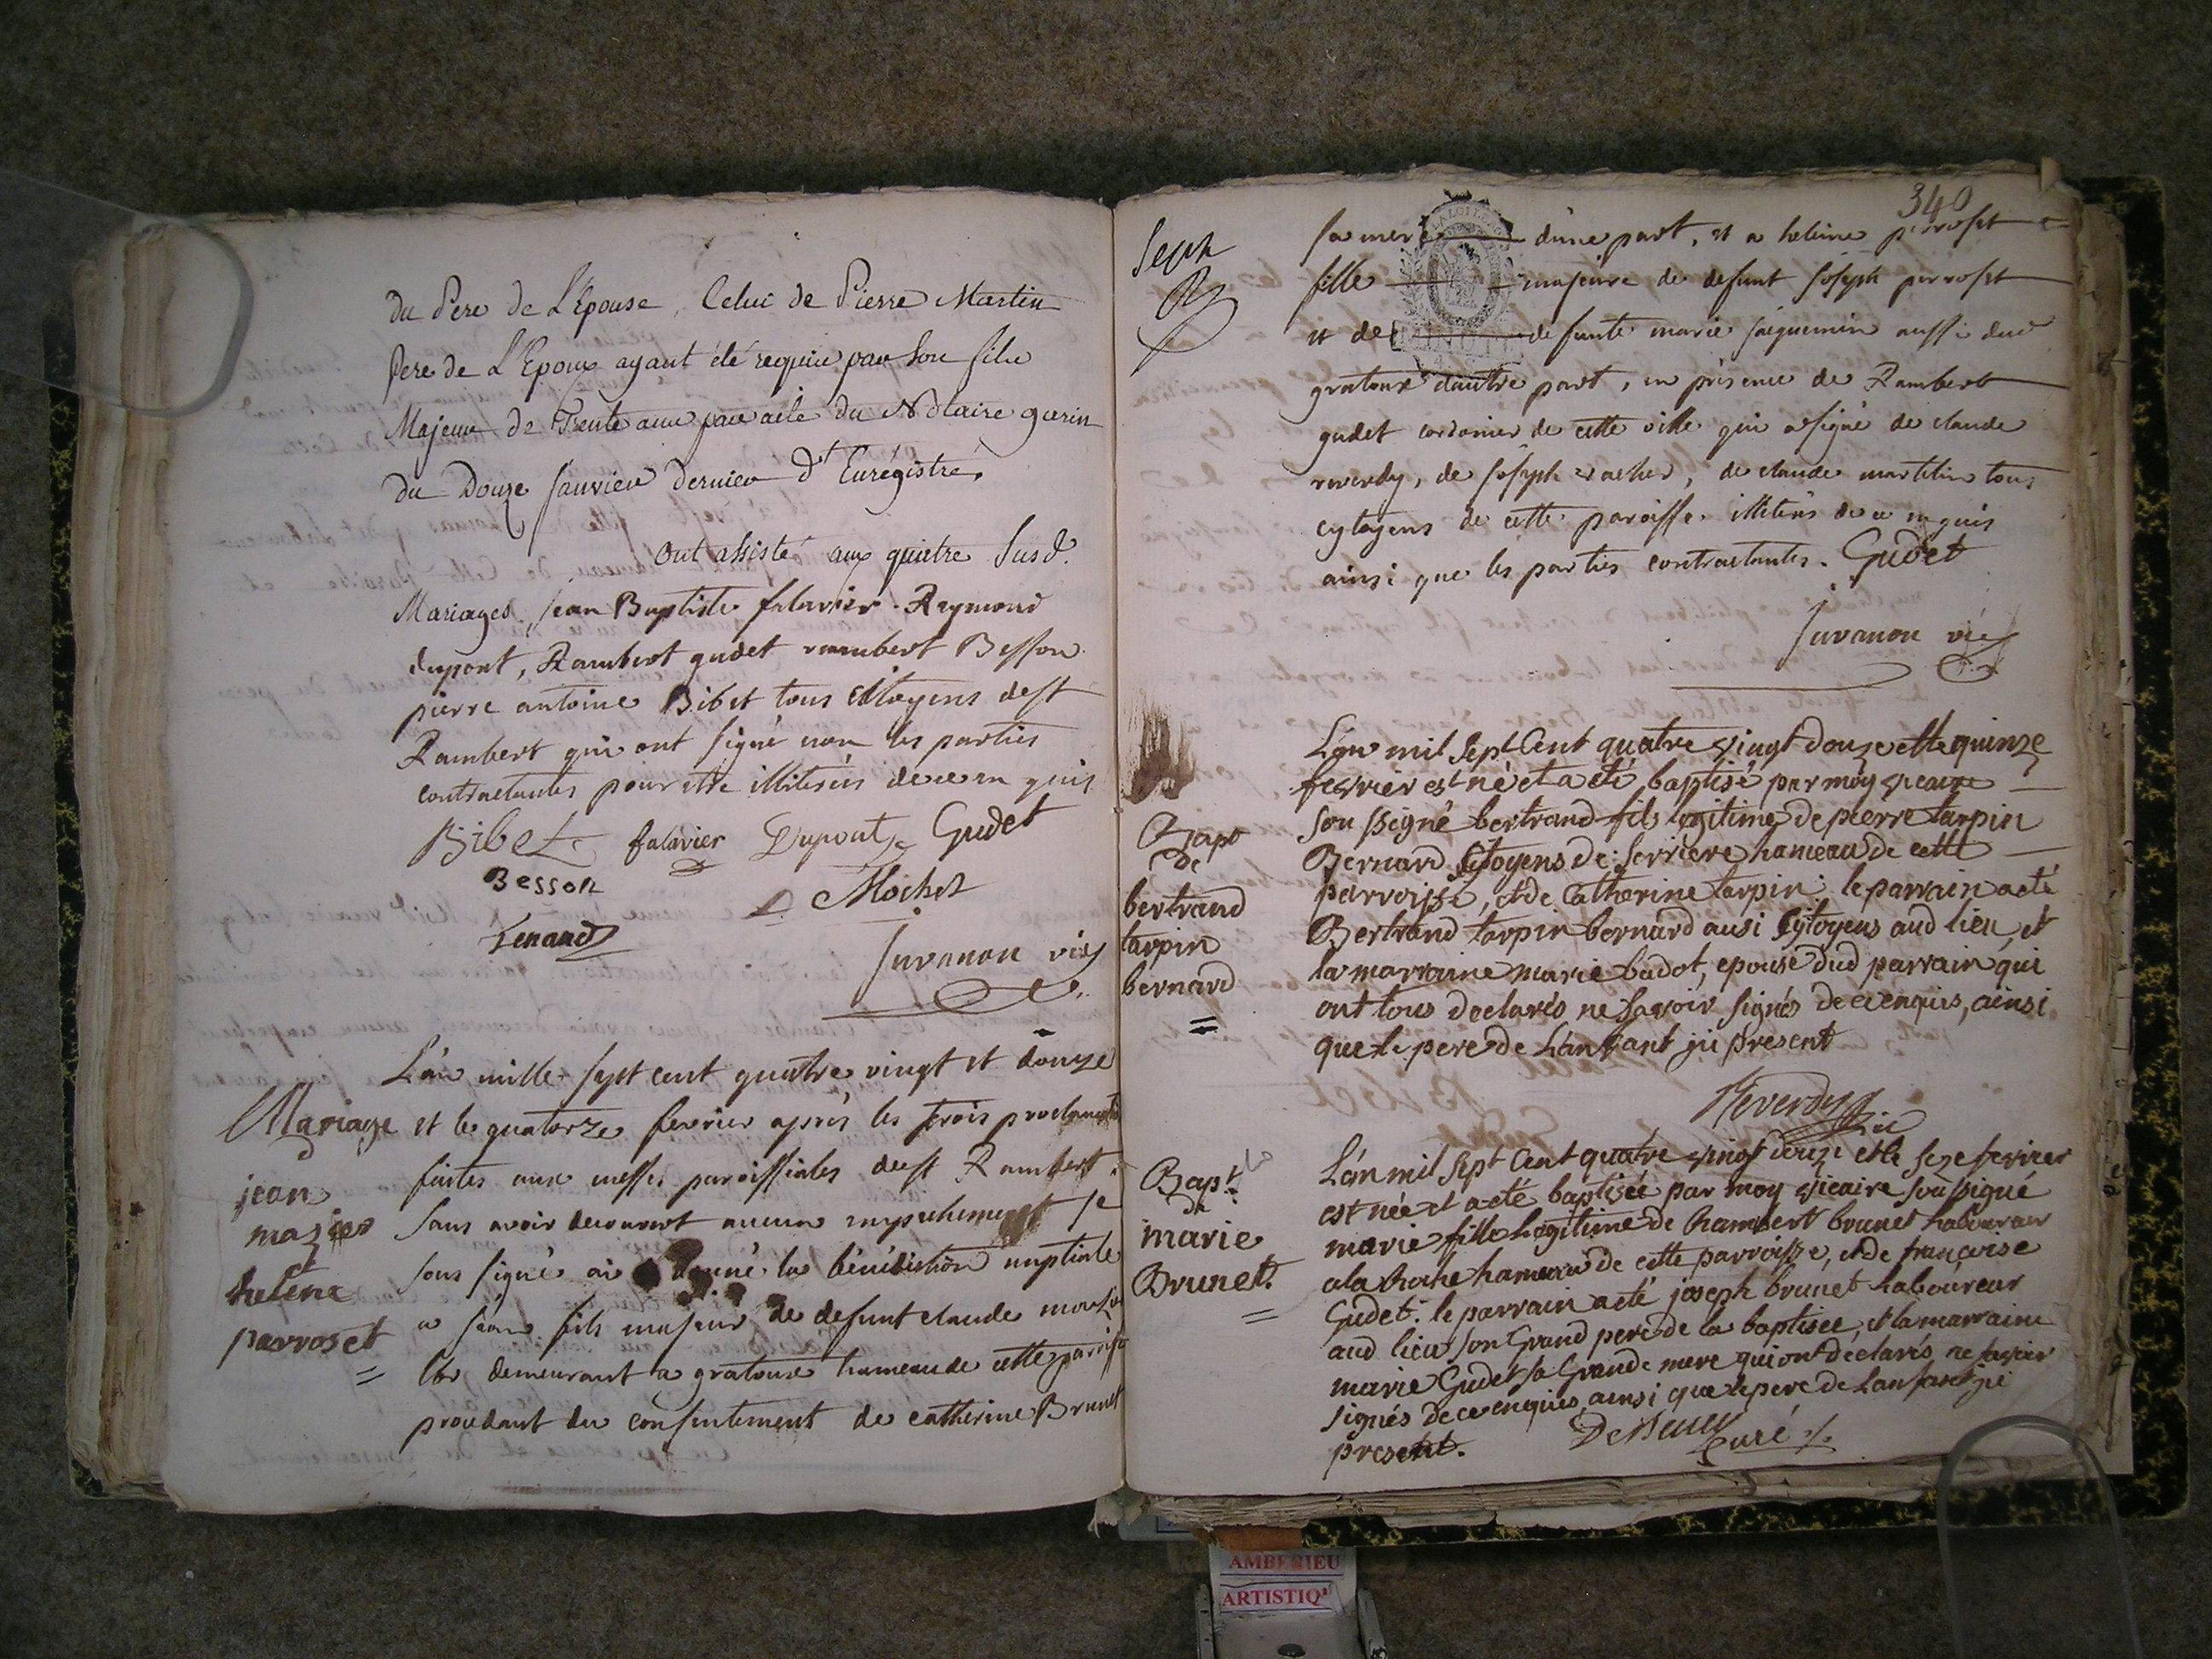 du Pere de L'Epouse, Celui de Pierre Martin
pere de L'Epoux ayant été requis par son fils
Majeur de Trente ans par acte du Notaire guerin
du Douze Janvier dernier dt Enrégistré.
ont assisté aux quatre susd.
Mariages, jean Baptiste falavier. Raymond
dupont, Rambert gudet rambert Besson
pierre antoine Bibet tous Citoyens de st
Rambert qui ont signé non les parties
contractantes pour etre illiterés de ce en quis
Bibet falavier Dupont Gudet
Besson
Mochet
Lenand
Juvanon vic
L'an mille sept cent quatre vingt et douze
Mariage et le quatorze fevrier après les trois proclamations
faites aux messes paroissiales de st Rambert.
jean
sans avoir decouvert aucun empechement je
mazier
et
sous signé ai donné la bénédiction nuptiale
helene
a jean fils majeur de defunt claude
parroset
demeurant a gratoux hameau de cette paroisse
=
procedant du consentement de catherine Brunet
340
Sept
sa mere d'une part, et a helene perroset
fille majeure de defunt joseph perroset
et de defunte marie jaquemin aussi dud
gratoux d'autre part, en présence de Rambert
gudet cordonier de cette ville qui a signé de claude
reverdy, de joseph vacher, de claude martelin tous
cytoyens de cette paroisse illiterés de ce enquis
ainsi que les parties contractantes. Gudet
Juvanon vic
L'an mil sept Cent quatre vingt douze et le quinze
fevrier est né et a eté baptisé par moy vicaire
soussigné bertrand fils legitime de pierre tarpin
Bapt
de
bertrand
tarpin
bernard
=
Bernard Citoyens de Serriere hameau de cette
parroisse, et de Catherine tarpin: le parrain a eté
Bertrand tarpin bernard ausi Cytoyens aud lieu, et
la marraine marie badot, epouse dud parrain qui
ont tous declarés ne savoir signés de ce enquis, ainsi
que le pere de L'anfant ji present
Reverdy
vic
L'an mil sept Cent quatre vingt douze et le seze fevrier
Bapt.
de
marie
Brunet.
=
est née et a eté baptisée par moy vicaire soussigné
marie fille Legitime de Rambert brunet laboureur
a la Roche hameau de cette parroisse, et de françoise
Gudet: le parrain a eté joseph brunet laboureur
aud lieu son Grand pere de la baptisee, et la marraine
marie Gudet sa Grande mere qui ont declarés ne savoir
signés de ce enquis, ainsi que le pere de L'anfant ji
present.
curé
AMBERIEU
ARTISTIQ'